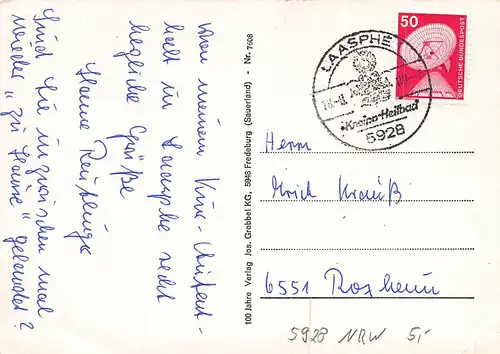 Von meinem Kur-Aufent-
halt in Laasphe recht
herzliche Grüße
Hanne
Sind Sie inzwischen mal
wieder "zu Hause" gelandet?
100 Jahre Verlag Jos. Grobbel KG, 5948 Fredeburg (Sauerland) - Nr. 7608
LAASPHE
Kneipp-Heilbad
5928
50
DEUTSCHE BUNDESPOST
Herrn
Erich Krauß
6551 Roxheim
5928 NRW 5,-